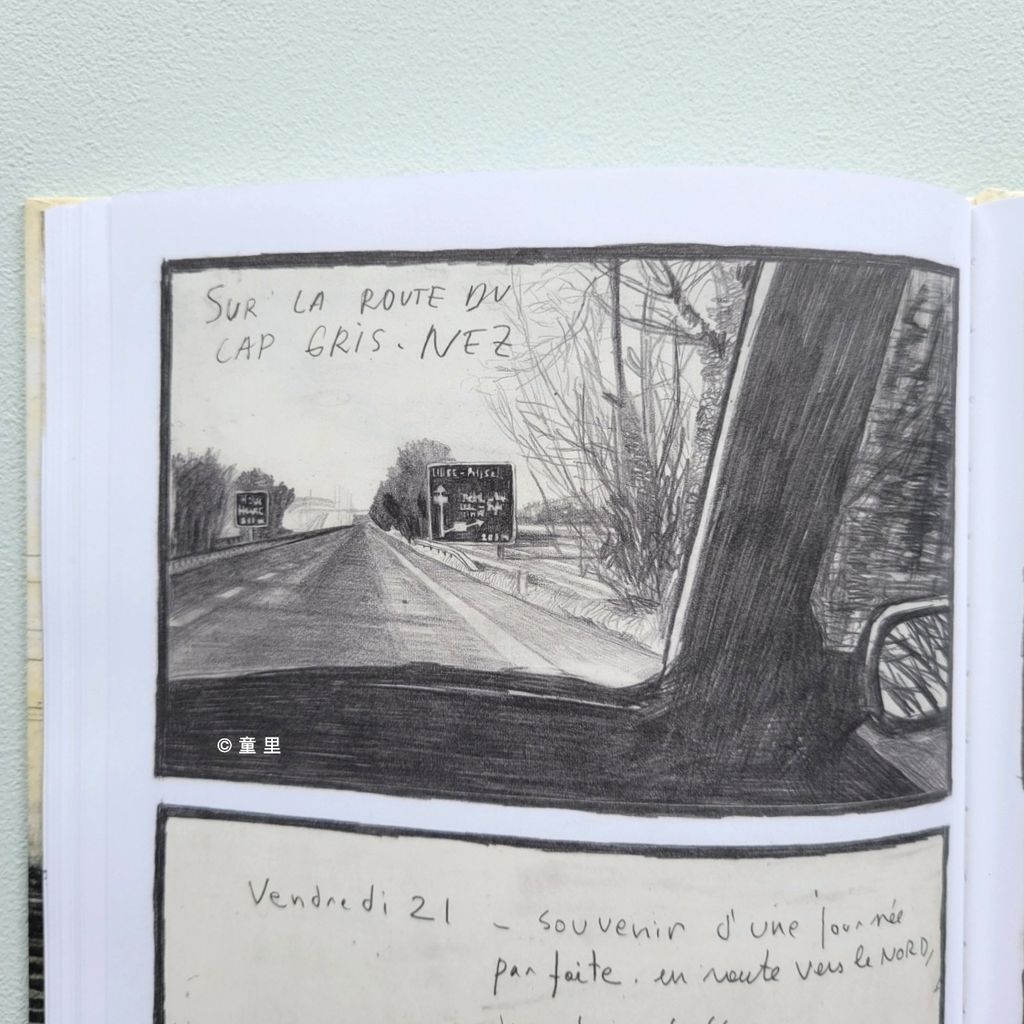 SUR LA ROUTE DU
CAP GRIS-NEZ
© 童里
Vendredi 21 - souvenir d'une journée
parfaite. en route vers le NORD,